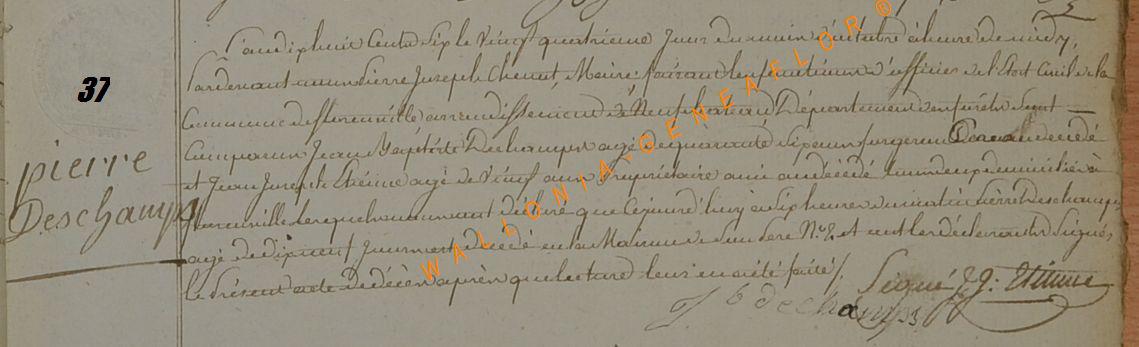 37
pierre
Deschamps
L'an dix huit cents dix le vingt quatrieme jour du mois d'octobre à l'heure de midy,
Pardevant nous Pierre Joseph Maire faisant les fonctions d'officier de l'Etat Civil de la
Commune de florenville arrondissement de Neufchateau Département des forêts Sont
Comparus Jean Baptiste Deschamps agé de quarante six ans forgeron décédé
et Jean Joseph Etienne agé de vingt ans Propriétaire ami au décédé tous deux domiciliés à
florenville lesquels nous ont déclaré que Cejourd'huy à six heures du matin Pierre Deschamps
agé de dix neuf jours est décédé en la Maison de Son Pere N.o 2 et ont les déclarants Signés
le Présent acte de décès après que lecture leur en a été faite /.
Signé J J: Etienne
J b dechamps
WALLONIA-GENEAFLOR®